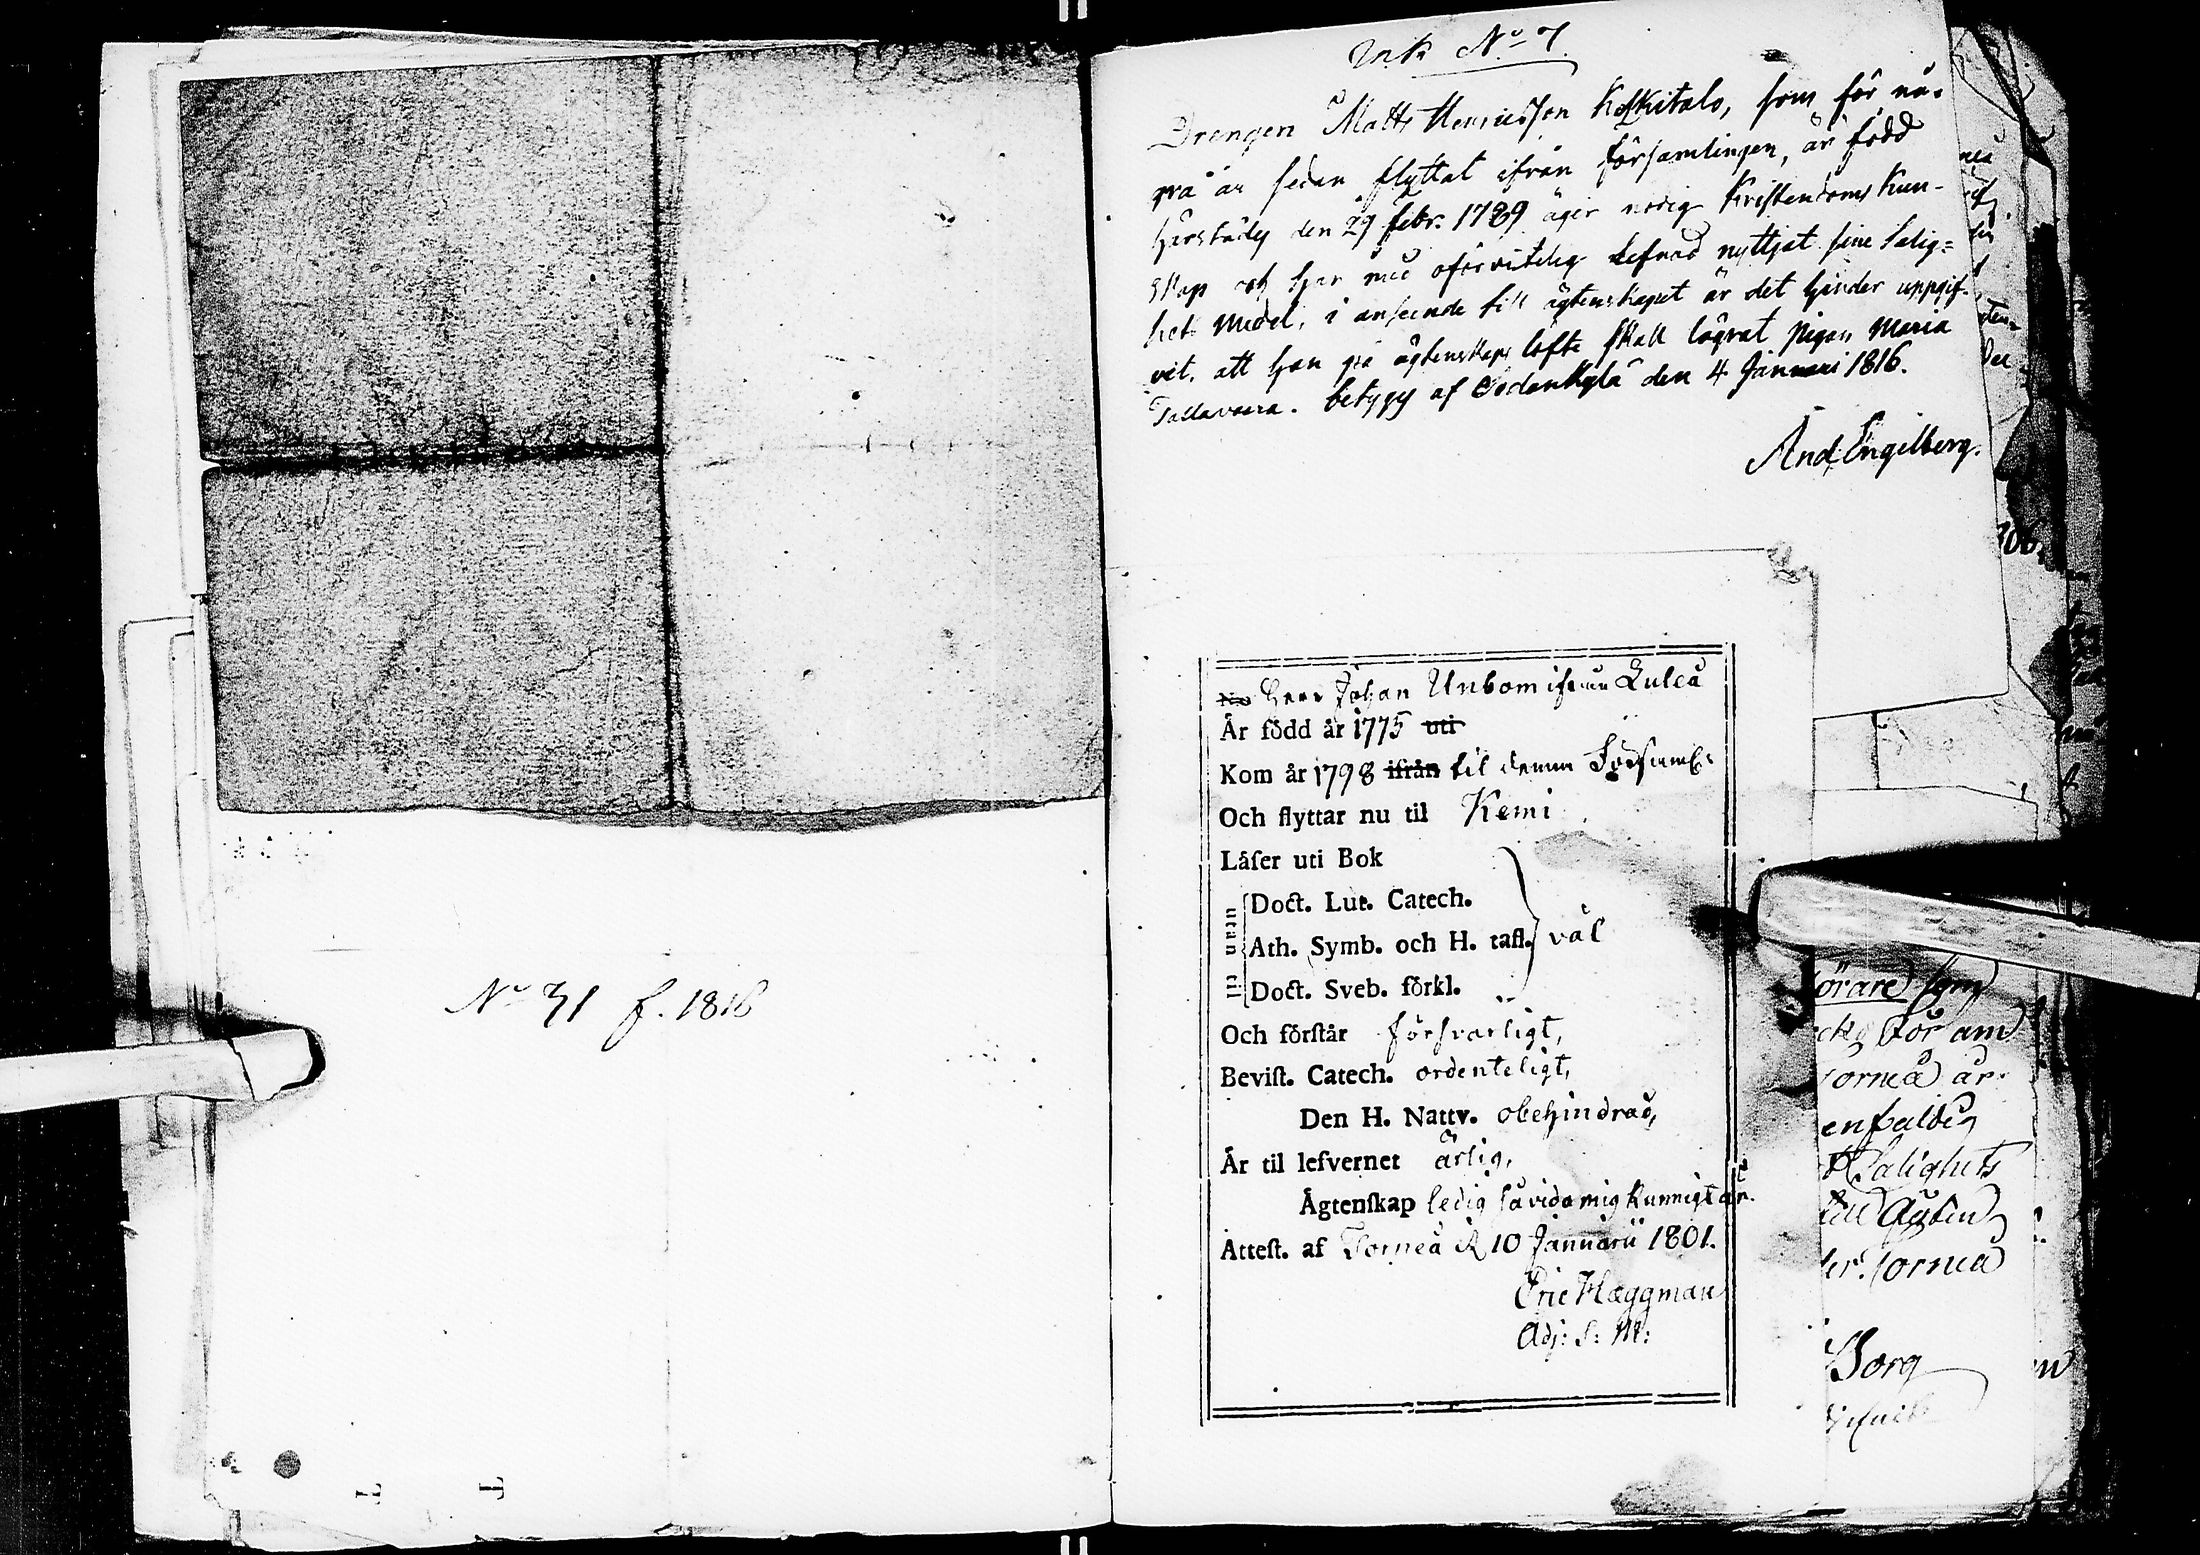 No 31 f. 1816
Ink No 7
Drengen Matts Henricsson Koskitalo, som för nå-
gra år sedan flyttat ifrån församlingen, är född
härstädes den 29 febr. 1789 äger nödig Kristendoms Kun-
skap och har med oförvitelig Lefnad nyttjat sine Salig=
het Medel, i anseende till ägtenskapet är det hinder uppgif-
vit, att han på ägtenskaps löfte skall lägrat pigan Maria
Tallavaara. betygy af Sodankylä den 4 Januari 1816.
And. Engelberg.
No Herr Johan Unbom ifrån Luleå
Är född år 1775 uti
Kom år 1798 ifrån til denna Församl:
Och flyttar nu til Kemi
Läſer uti Bok
utan til
Doct. Lut. Catech.
Ath. Symb. och H. tafl. väl
Doct. Sveb. förkl.
Och förſtår försvarligt,
Beviſt. Catech. ordenteligt,
Den H. Nattv. obehindrad,
Är til lefvernet ärlig,
Ägtenſkap ledig såvida mig kunnigt är.
Atteſt. af Torneå d 10 Januarii 1801.
Eric Hæggman
Adj: S: M:
306.
örare som
för am
orneå är
enfaldig
Salighets
till Ägten
er. Torneå
Borg